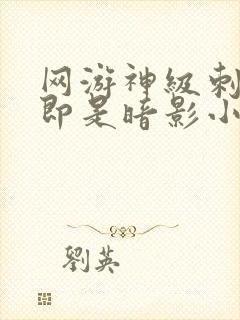 网游神级刺
即是暗影小
劉英